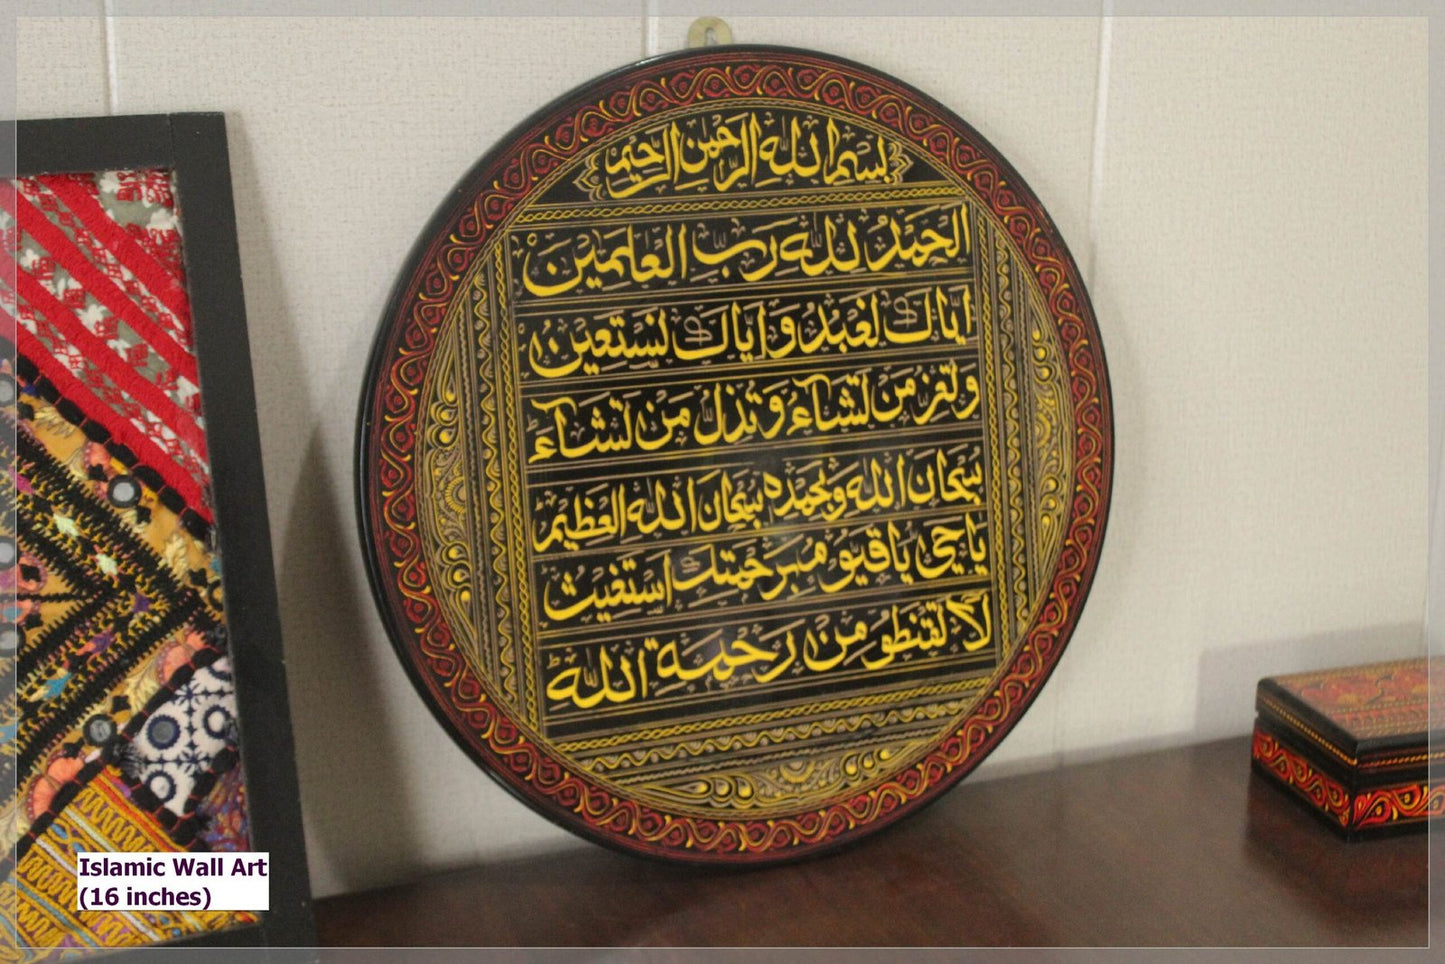 بسم الله الرحمن الرحيم
الحمد لله رب العلمين
اياك نعبد و اياك نستعين
وتعز من تشاء وتذل من تشاء
سبحان الله وبحمده سبحان الله العظيم
ياحي ياقيوم برحمتك استغيث
لا تقنطو من رحمة الله
Islamic Wall Art
(16 inches)